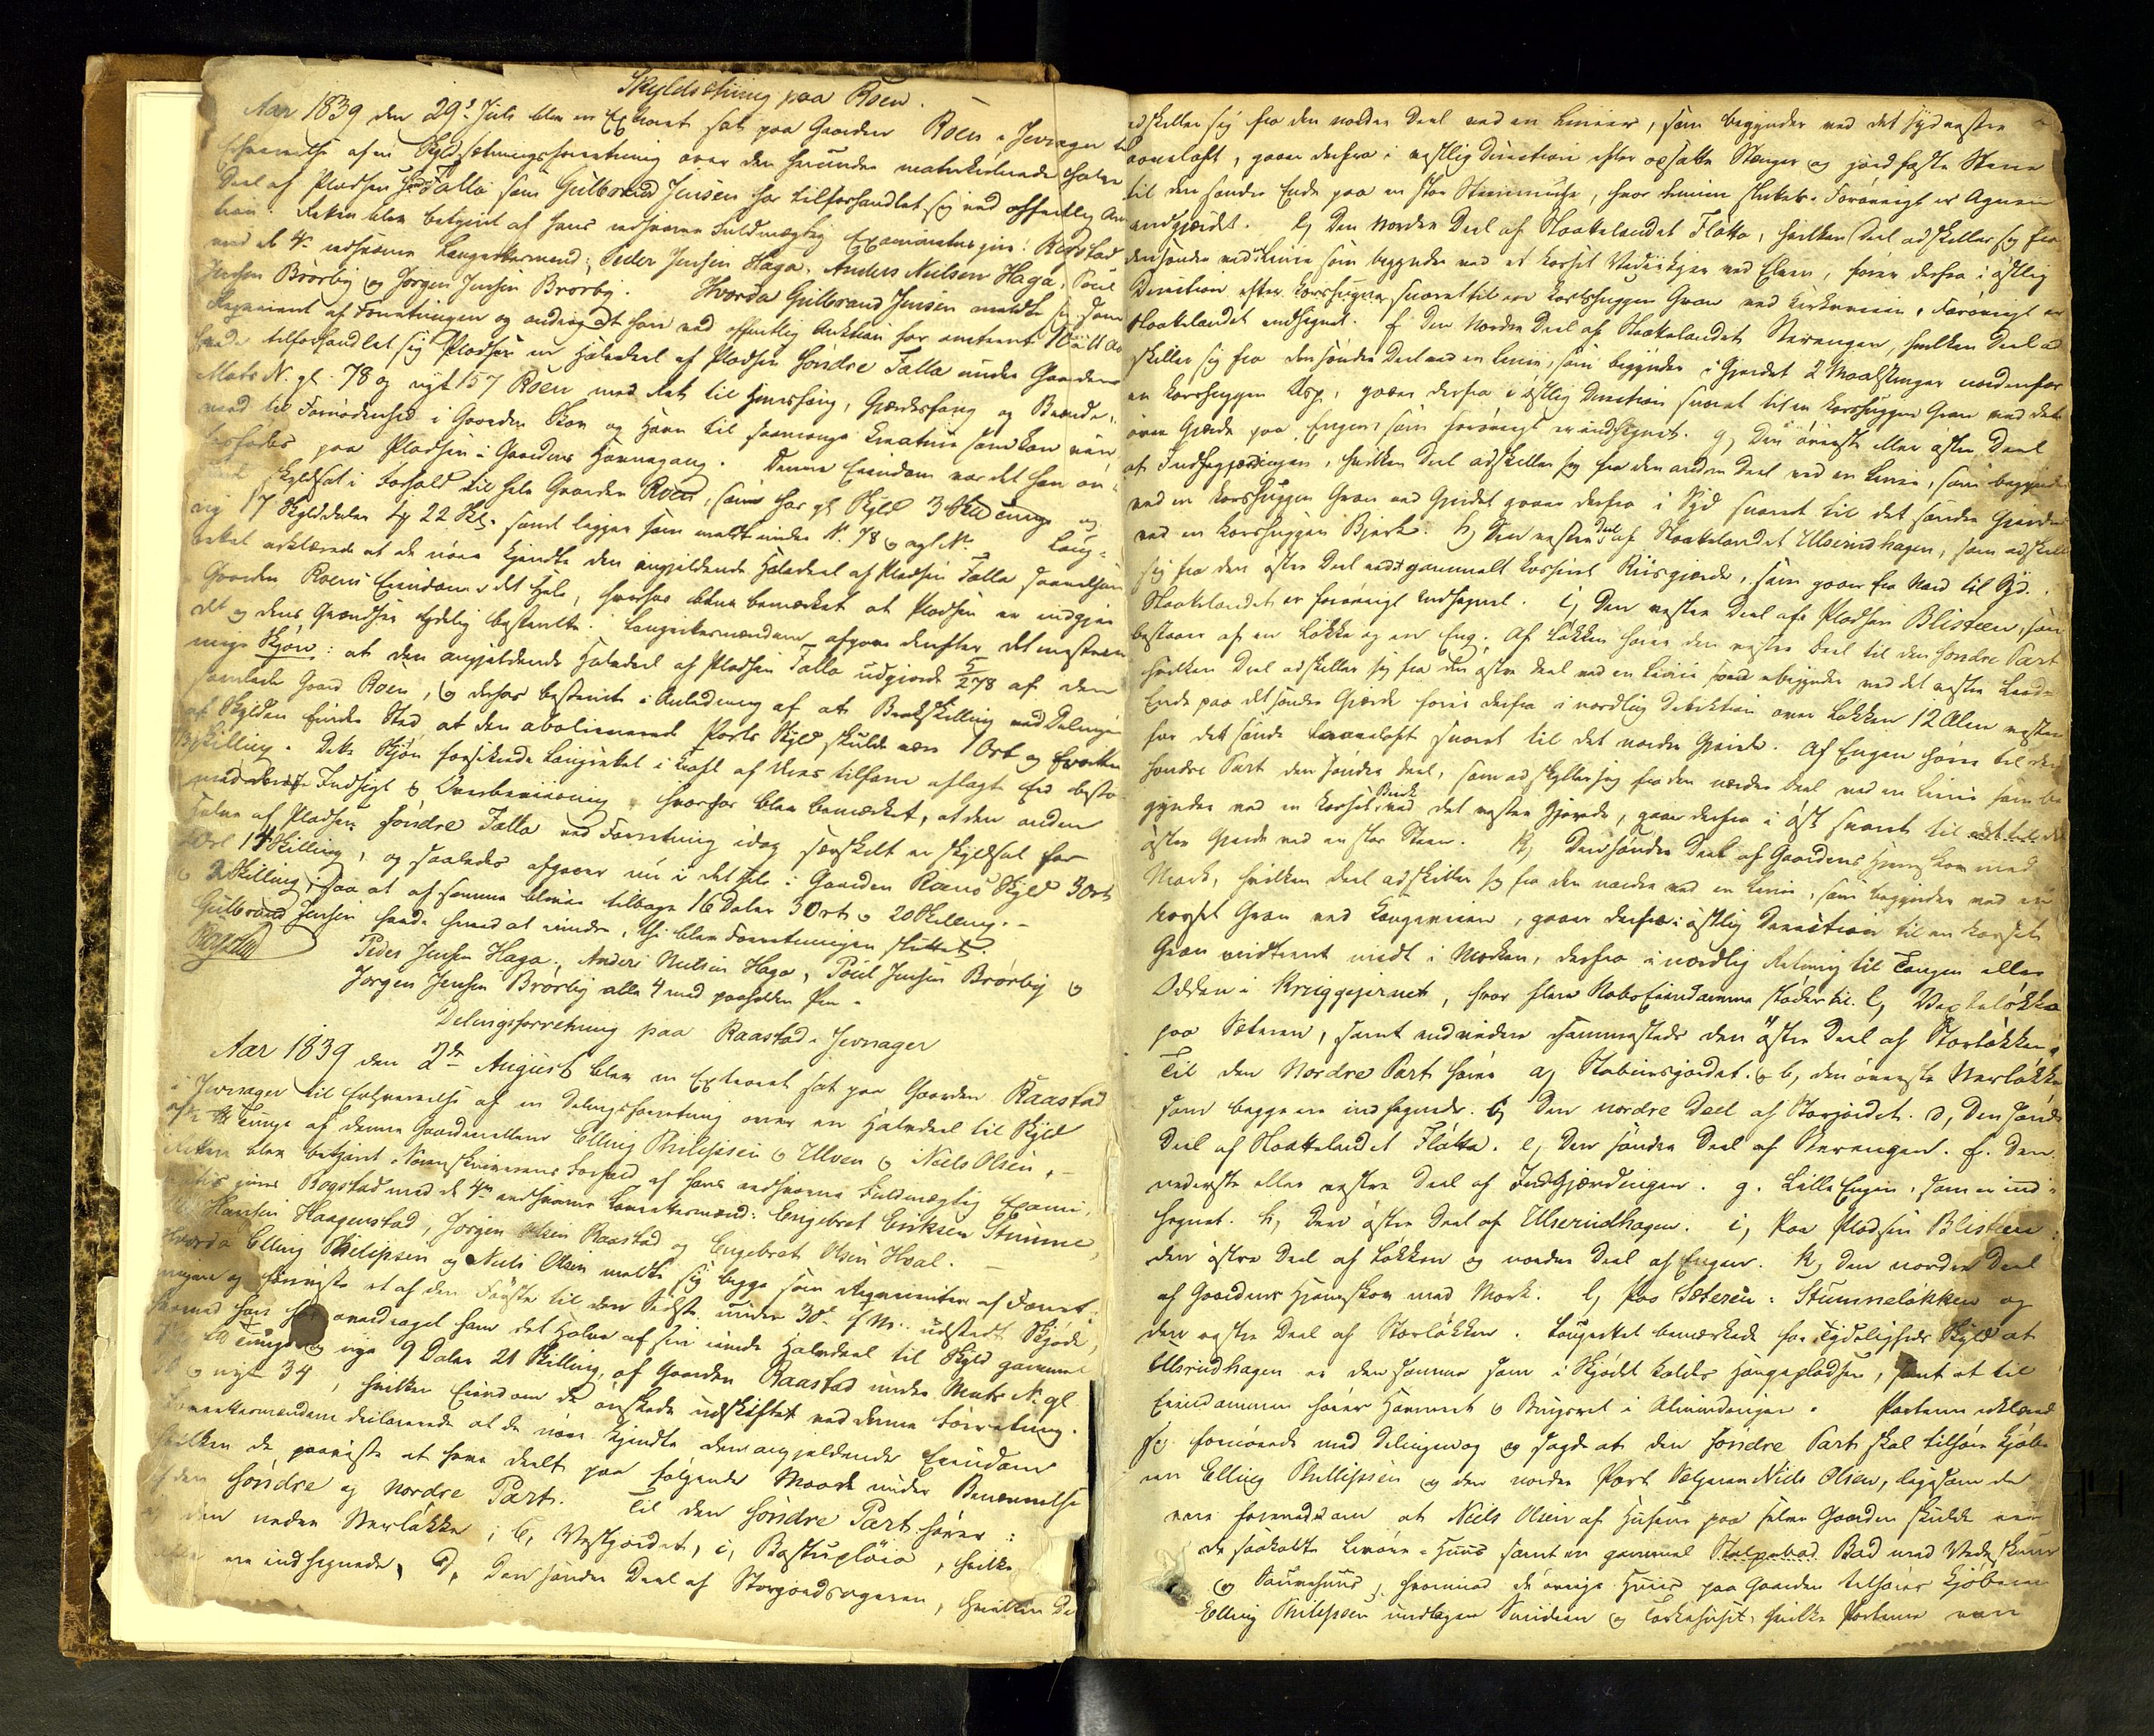 Skyldsetning paa Roen.
Aar 1839 den 29de Juli blev en Extraret sat paa Gaarden Roen i Jevnager til
af en Skyldsætningsforretning over den herunder matrikulerede halve
Deel af Pladsen Falla som Gulbrand Jensen har tilforhandlet sig ved offentlig Auc-
tion. Retten blev betjent af hans edsvorne Fuldmægtig Examinatus juris: Rogstad
med de 4re edsvorne Laugrettesmænd: Peder Jensen Haga, Anders Nielsen Haga, Poul
Jensen Brørby og Jørgen Jensen Brørby. Hvorda Gulbrand Jensen meldte sig som
Reqvirent af Forretningen og androg at han ved offentlig Auktion for omtrent 10 à 11 Aar
siden tilforhandlet sig Pladsen en Halvdeel af Pladsen Søndre Falla under Gaarden
Matr N. gl. 78 og nyt 157 Roen med Ret til Huusfang, Gjerdefang og Brænde-
ved til Fornødenhed i Gaardens Skov og Havn til saamange Kreature som kan vin-
terfødes paa Pladsen i Gaardens Havnegang. Denne Eiendom var det han øn-
skede skyldsat i Forhold til hele Gaarden Roen, som har gl Skyld 3 Skind og
ny 17 Skylddaler 4 22 Sk. samt ligger som meldt under N. 78 og nyt N. Laug-
rettet erklærede at de nøie kjendte den angjeldende Halvdeel af Pladsen Falla saavelsom
Gaarden Roens Eiendom i det Hele, hvorhos blev bemærket at Pladsen er indgjer-
det og dens Grændser tydelig bestemte. Laugrettesmændene afgave derefter det eenstem-
mige Skjøn: at den angjeldende Halvdeel af Pladsen Falla udgjorde 5/278 af den
samlede Gaard Roen, og derfor bestemt i Anledning af at Brøkskilling ved Delingen
af Skylden finder Sted, at den abalienerede Parts Skyld skulde være 1 Ort og fjorten
Skilling. Dette Skjøn forsikrede Laugrettet i Kraft af deres tilforn aflagte Eed
Indsigt og Overbeviisning. Hvorhos blev bemærket, at den anden
Halve af Pladsen Søndre Falla ved Forretning idag særskilt er skyldsat for
1 Ort 14 Skilling, og saaledes afgaaer nu i det Hele i Gaarden Roens Skyld 3 Ort
og 2 Skilling, saa at af samme bliver tilbage 16 Daler 3 Ort og 20 Skilling.-
Gulbrand Jensen havde hermed at erindre, thi blev Forretningen sluttet.
Rogstad Peder Jensen Haga, Anders Nielsen Haga, Poul Jensen Brørby og
Jørgen Jensen Brørby alle 4 med paaholden Pen.-
Delingsforretning paa Raastad i Jevnager
Aar 1839 den 2de August blev en Extraret sat paa Gaarden Raastad
i Jevnager til af en Delingsforretning over en Halvdeel til Skyld
af denne Gaard mellem Elling Philipsen Ulven og Niels Olsen.-
Retten blev betjent i Sorenskriverens Forfald af hans edsvorne Fuldmægtig Exami-
natus juris Rogstad med de 4re edsvorne Laugrettesmænd: Engebret Eriksen Stumne,
Hansen Haagenstad, Jørgen Olsen Raastad og Engebret Olsen Hval.-
Hvorda Elling Philipsen og Niels Olsen meldte sig begge som Reqvirenter af Forret-
ningen og foreviste et af den Første til den Sidste under 30te f.M. udstedt Skjøde,
hvorved han har overdraget ham det Halve af sin eiende Halvdeel til Skyld gammel
og nye 9 Daler 21 Skilling, af Gaarden Raastad under Matr N. gl.
og nyt 34, hvilken Eiendom de ønskede udskiftet ved denne Forretning.
Laugrettesmændene declarerede at de nøie kjendte den angjeldende Eiendom
hvilken de paaviste at have deelt paa følgende Maade under Benævnelse
af den Søndre og Nordre Part. Til den Søndre Part hører:
a, den nedre Nerløkke; b, Vestjordet, c, Bastupløia, hvilke
alle ere indhegnede, d, Den søndre Deel af Storjordsageren, hvilken Deel
adskiller sig fra den nordre Deel ved en Linie, som begynder ved det sydvestre
Laaveloft, gaaer derfra i vestlig Direction efter opsatte Stænger og jordfaste Stene
til den søndre Ende paa en stor Steenmuse, hvor Linien slutter. Forøvrigt er Ageren
indgjerdet. e, Den Nordre Deel af Slaattelandet Fløtta, hvilken Deel adskiller sig fra
den søndre ved en Linie som begynder ved et korset Vidiekjær ved Elven, farer derfra i østlig
Direction efter Korshugne svaret til en korshuggen Gran ved Kirkeveien. Forøvrigt er
Slaattelandet indhegnet. f. Den Nordre Deel af Slaattelandet Nerengen, hvilken Deel ad-
skiller sig fra den søndre Deel ved en Linie, som begynder i Gjerdet 2 Maalstænger nordenfor
en korshuggen Asp, gaaer derfra i østlig Direction svaret til en korshuggen Gran ved det
øvre Gjerde paa Engen som forøvrigt er indhegnet. g, Den øverste eller østre Deel
af Indhegjerdingen, hvilken Deel adskiller sig fra den anden Deel ved en Linie, som begynder
ved en korshuggen Gran ved Gjerdet gaaer derfra i Syd svaret til det søndre Gjerde
ved en korshuggen Bjerk. h, Den vestre Deel af Slaattelandet Ulserudhagen, som adskiller
sig fra den østre Deel ved et gammelt korset Riisgjerde, som gaaer fra Nord til Syd.
Slaattelandet er forøvrigt indhegnet. i, Den vestre Deel af Pladsen Blisteen, som
bestaaer af en Løkke og en Eng. Af Løkken hører den vestre Deel til den Søndre Part
hvilken Deel adskiller sig fra den østre Deel ved en Linie som begynder ved det vestre Led-
Ende paa det søndre Gjerde farer derfra i nordlig Direktion over Løkken 12 Alen vesten
for det søndre Laaveloft svaret til det nordre Gjerde. Af Engen hører til den
Søndre Part den søndre Deel, som adskiller sig fra den nordre Deel ved en Linie som be-
gynder ved en korset Birk ved det vestre Gjerde, gaaer derfra i øst svaret til
østre Gjerde ved en stor Steen. k, Den søndre Deel af Gaardens Hjemskov med
Mark, hvilken Deel adskiller sig fra den nordre ved en Linie, som begynder ved en
korset Gran ved Kongeveien, gaaer derfra i østlig Direction til en korset
Gran midt i Marken, derfra i nordlig Retning til Tangen eller
Odden i Kruggtjernet, hvor flere Nabo Eiendomme støder til. l,
paa Sæteren, samt endvidere sammesteds den østre Deel af Storløkken.
Til den Nordre Part hører a, Stabuursjordet. b, den øverste Nerløkke
som begge ere indhegnede. c, Den nordre Deel af Storjordet. d, Den Søndre
Deel af Slaattelandet Fløtta. e, Den søndre Deel af Nerengen. f. Den
nederste eller vestre Deel af Indgjærdingen. g. Lille Engen, som er ind-
hegnet. h, Den østre Deel af Ulserudhagen. i, Paa Pladsen Blisteen:
den østre Deel af Løkken og nordre Deel af Engen. k, Den nordre Deel
af Gaardens Hjemskov med Mark. l, Paa Sæteren: Stumneløkken og
den vestre Deel af Storløkken. Laugrettet bemærkede for Tydeligheds Skyld at
Ulserudhagen er den samme som i Skjødet kaldes Haugepladsen, samt at til
Eiendommen hører Havneret og Brugsret i Almindingen. Parterne erklærede
sig fornøiede med Delingen og sagde at den Søndre Part skal tilhøre Kjøbe-
ren Elling Philipsen og den nordre Part Sælgeren Niels Olsen, ligesom de
vare forenede om at Niels Olsen af Husene paa selve Gaarden skulde eie
de saakaldte Huus samt en gammel Stolpebod Bad med Vedskuur
og Sauehuus, hvorimod de øvrige Huse paa Gaarden tilhøre Kjøberen
Elling Philipsen undtagen Smidien og Tørkehuset, hvilke Parterne vare